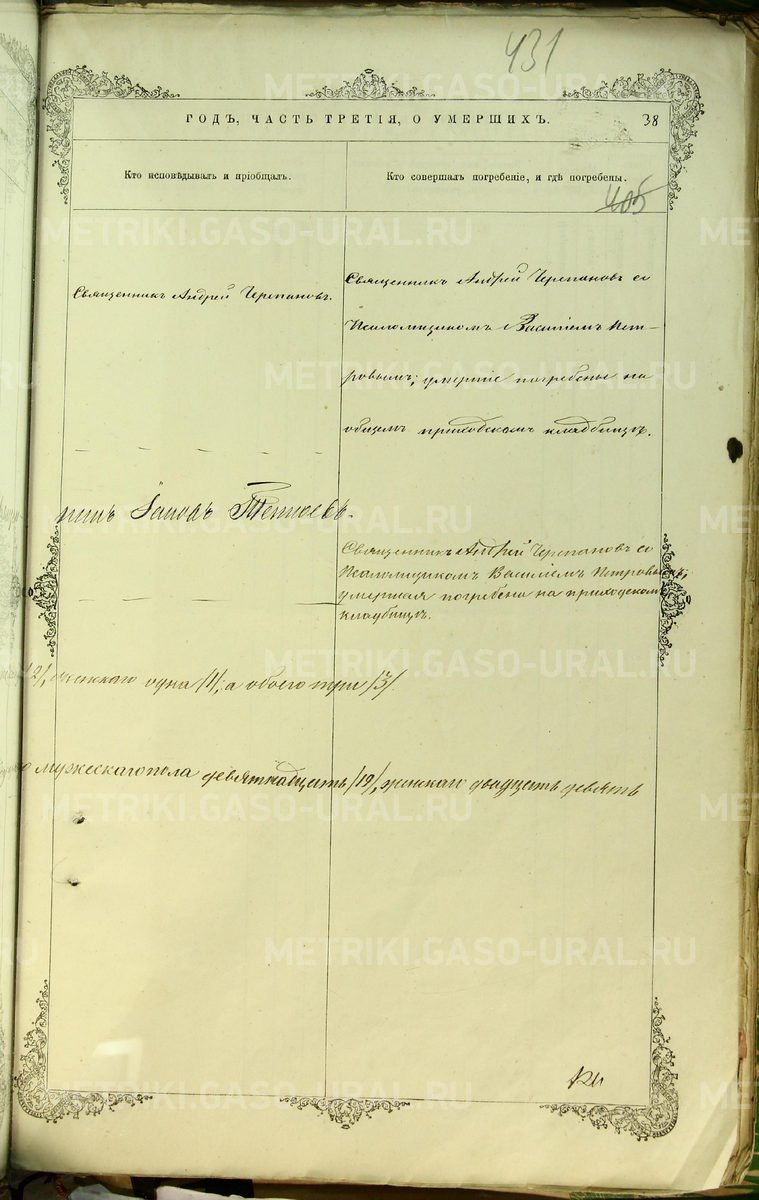 431
ГОДЪ, ЧАСТЬ ТРЕТІЯ, О УМЕРШИХЪ.
38
Кто исповѣдывалъ и пріобщалъ.
Кто совершалъ погребеніе, и гдѣ погребены.
405
Священникъ Андрей Черепановъ.
Священникъ Андрей Черепановъ со
Псаломщикомъ Василіемъ Пет-
ровымъ; умершіе погребены на
общемъ приходскомъ кладбищѣ.
Священникъ Андрей Черепановъ со
Псаломщикомъ Василіемъ Петровымъ;
умершая погребена на приходскомъ
кладбищѣ.
/2/, женскаго одна /1/, а обоего три /3/.
мужескаго пола девятнадцать /19/, женскаго двадцать девять
METRIKI.GASO-URAL.RU